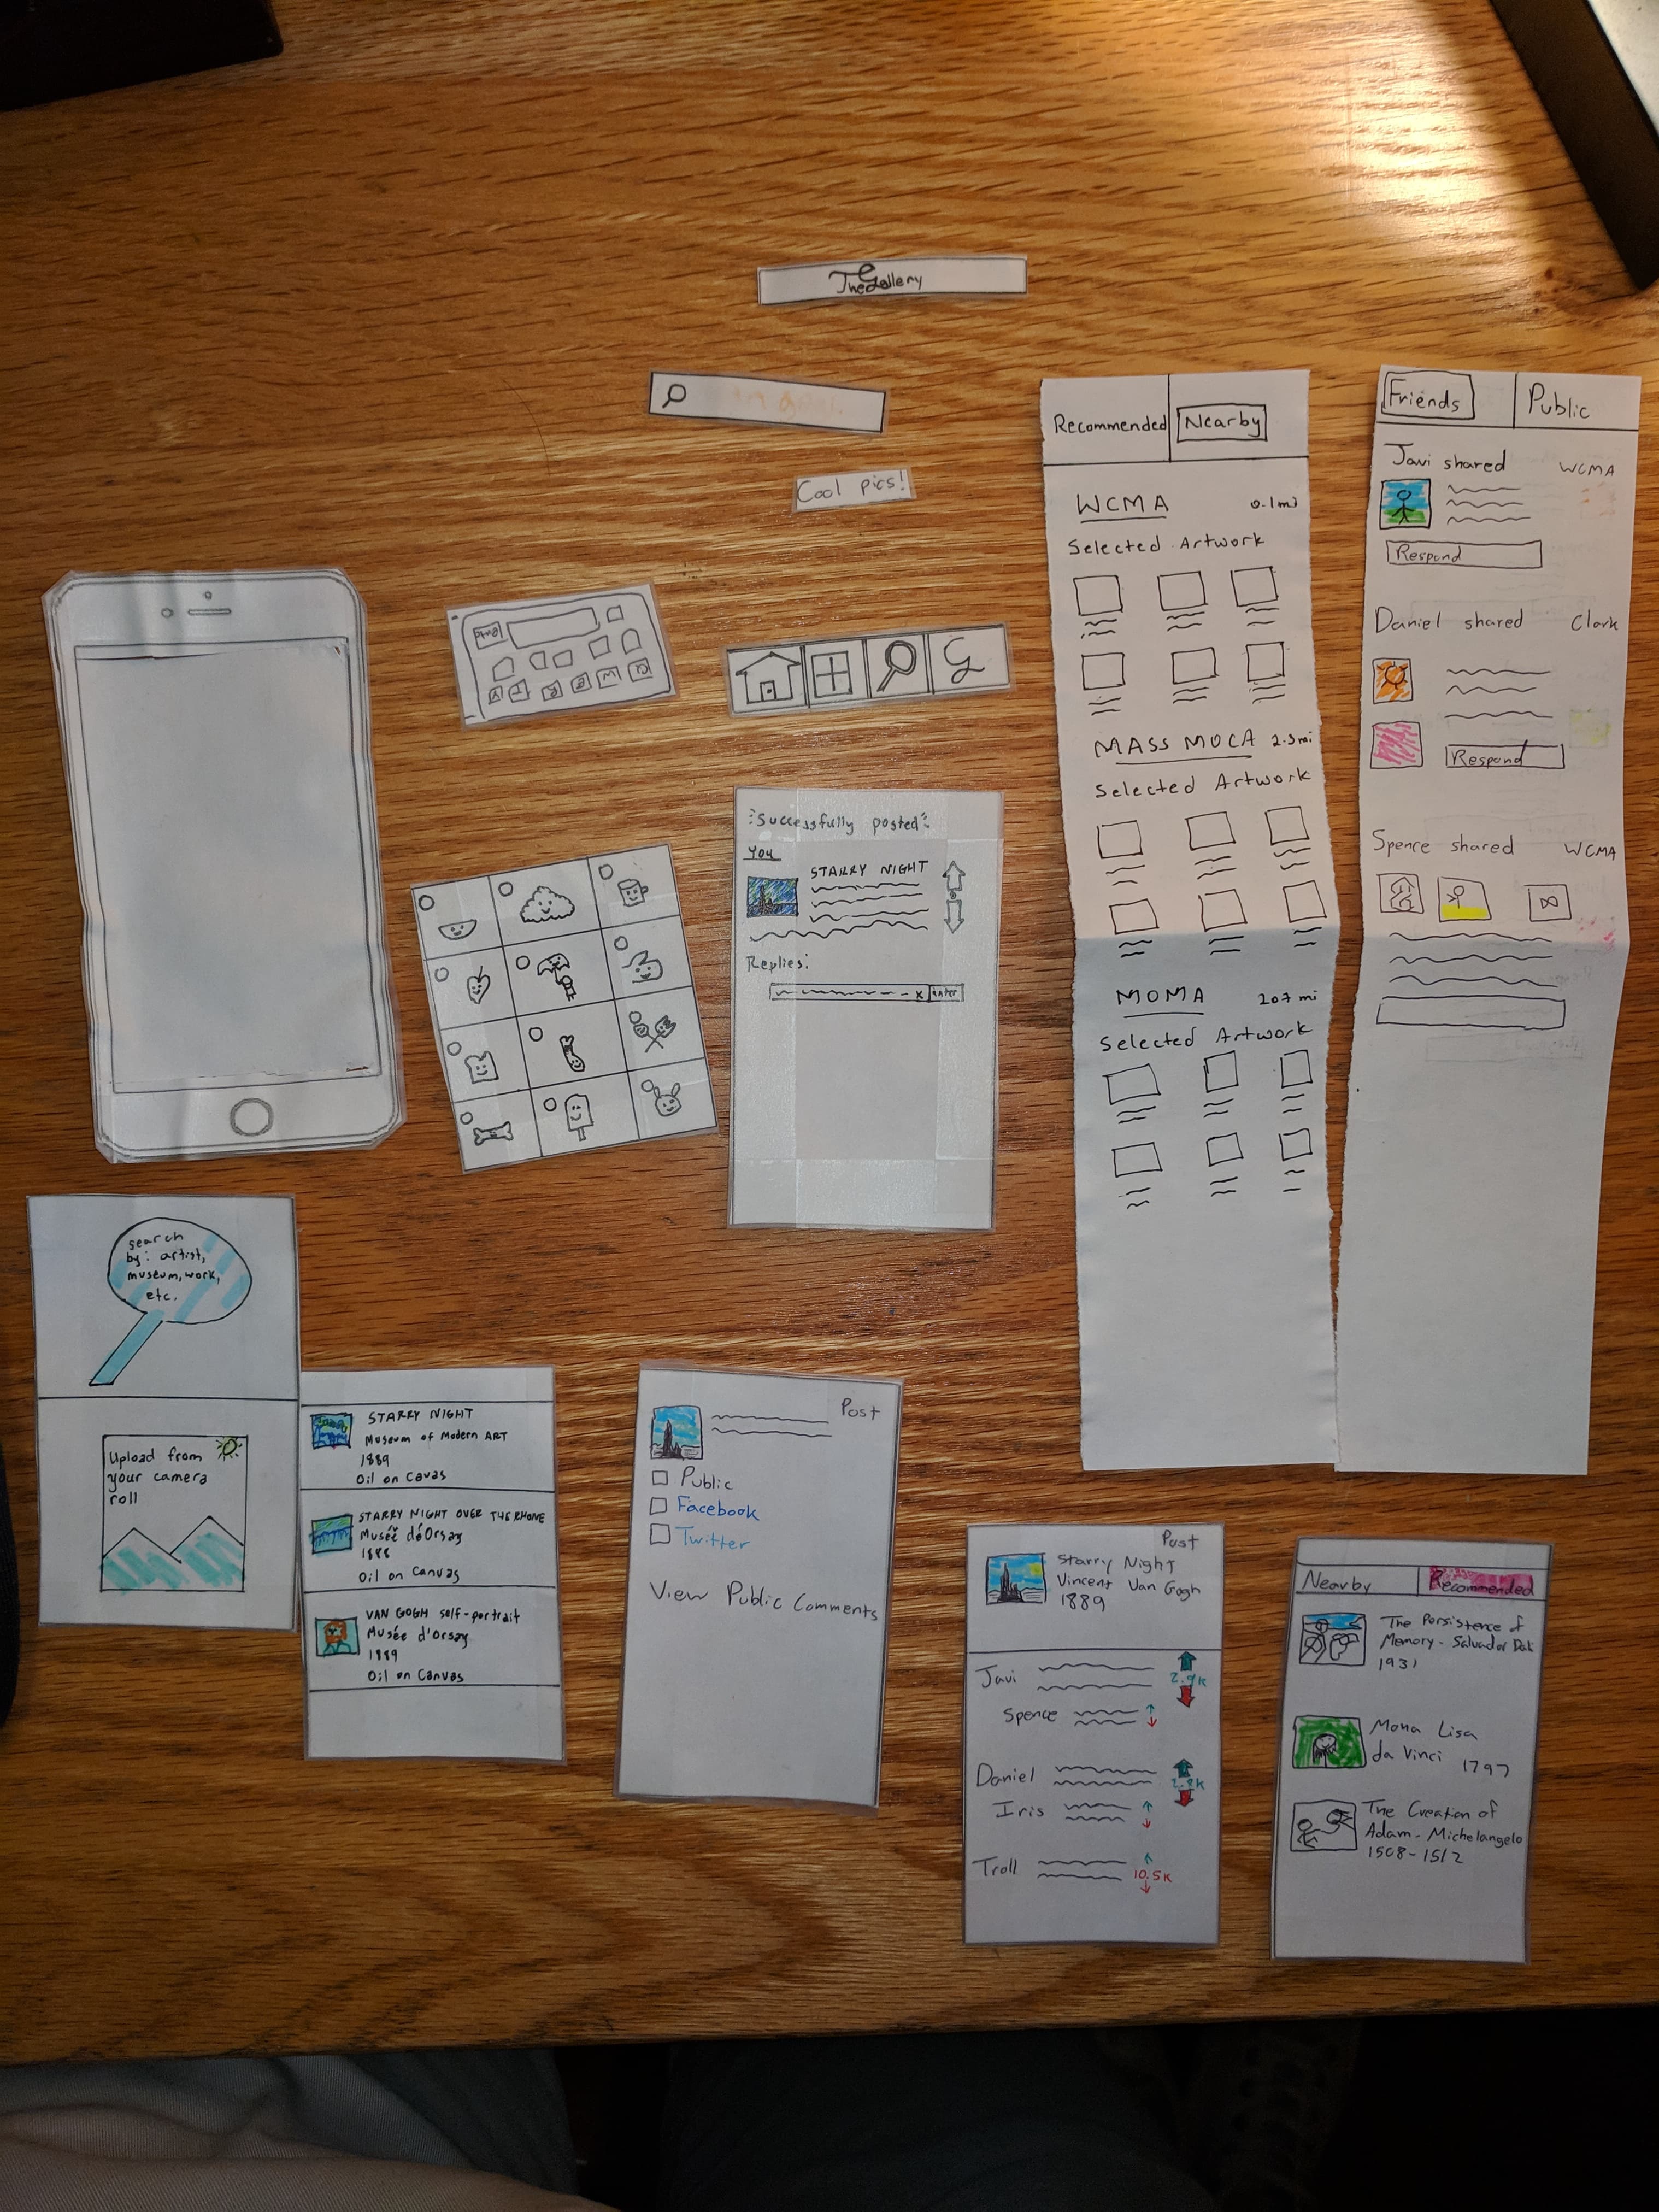 The Gallery
Cool pics!
Recommended
Nearby
WCMA
0.1mi
Selected Artwork
MASS MOCA 2.3mi
Selected Artwork
MOMA
207 mi
Selected Artwork
Friends
Public
Javi shared
WCMA
Respond
Daniel shared
Clark
Respond
Spence shared
WCMA
Successfully posted
You
STARRY NIGHT
Replies:
x enter
search
by: artist,
museum, work,
etc.
Upload from
your camera
roll
STARRY NIGHT
Museum of Modern ART
1889
Oil on Cavas
STARRY NIGHT OVER THE RHONE
Museé d'Orsay
1888
Oil on Canvas
VAN GOGH self-portrait
Musée d'Orsay
1889
Oil on Canvas
Post
Public
Facebook
Twitter
View Public Comments
Post
Starry Night
Vincent Van Gogh
1889
Javi
2.9K
Spence
Daniel
2.8K
Iris
Troll
10.5K
Nearby
Recommended
The Persistence of
Memory - Salvador Dali
1931
Mona Lisa
da Vinci 1797
The Creation of
Adam - Michelangelo
1508-1512